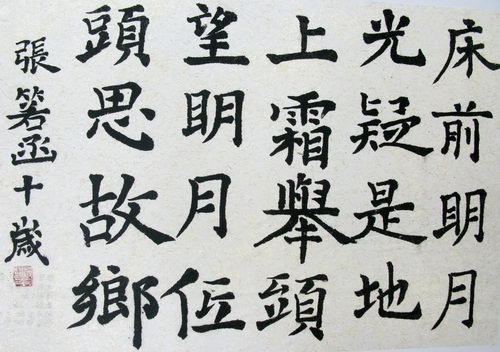 床前明月
光疑是地
上霜舉頭
望明月低
頭思故鄉
張箬函十歲